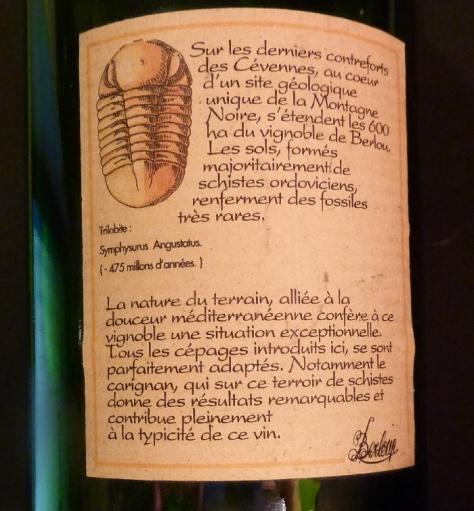 Sur les derniers contreforts
des Cévennes, au coeur
d'un site géologique
unique de la Montagne
Noire, s'étendent les 600
ha du vignoble de Berlou.
Les sols, formés
majoritairement de
schistes ordoviciens,
renferment des fossiles
très rares.
Trilobite :
Symphysurus Angustatus.
( - 475 millons d'années. )
La nature du terrain, alliée à la
douceur méditerranéenne confère à ce
vignoble une situation exceptionnelle.
Tous les cépages introduits ici, se sont
parfaitement adaptés. Notamment le
carignan, qui sur ce terroir de schistes
donne des résultats remarquables et
contribue pleinement
à la typicité de ce vin.